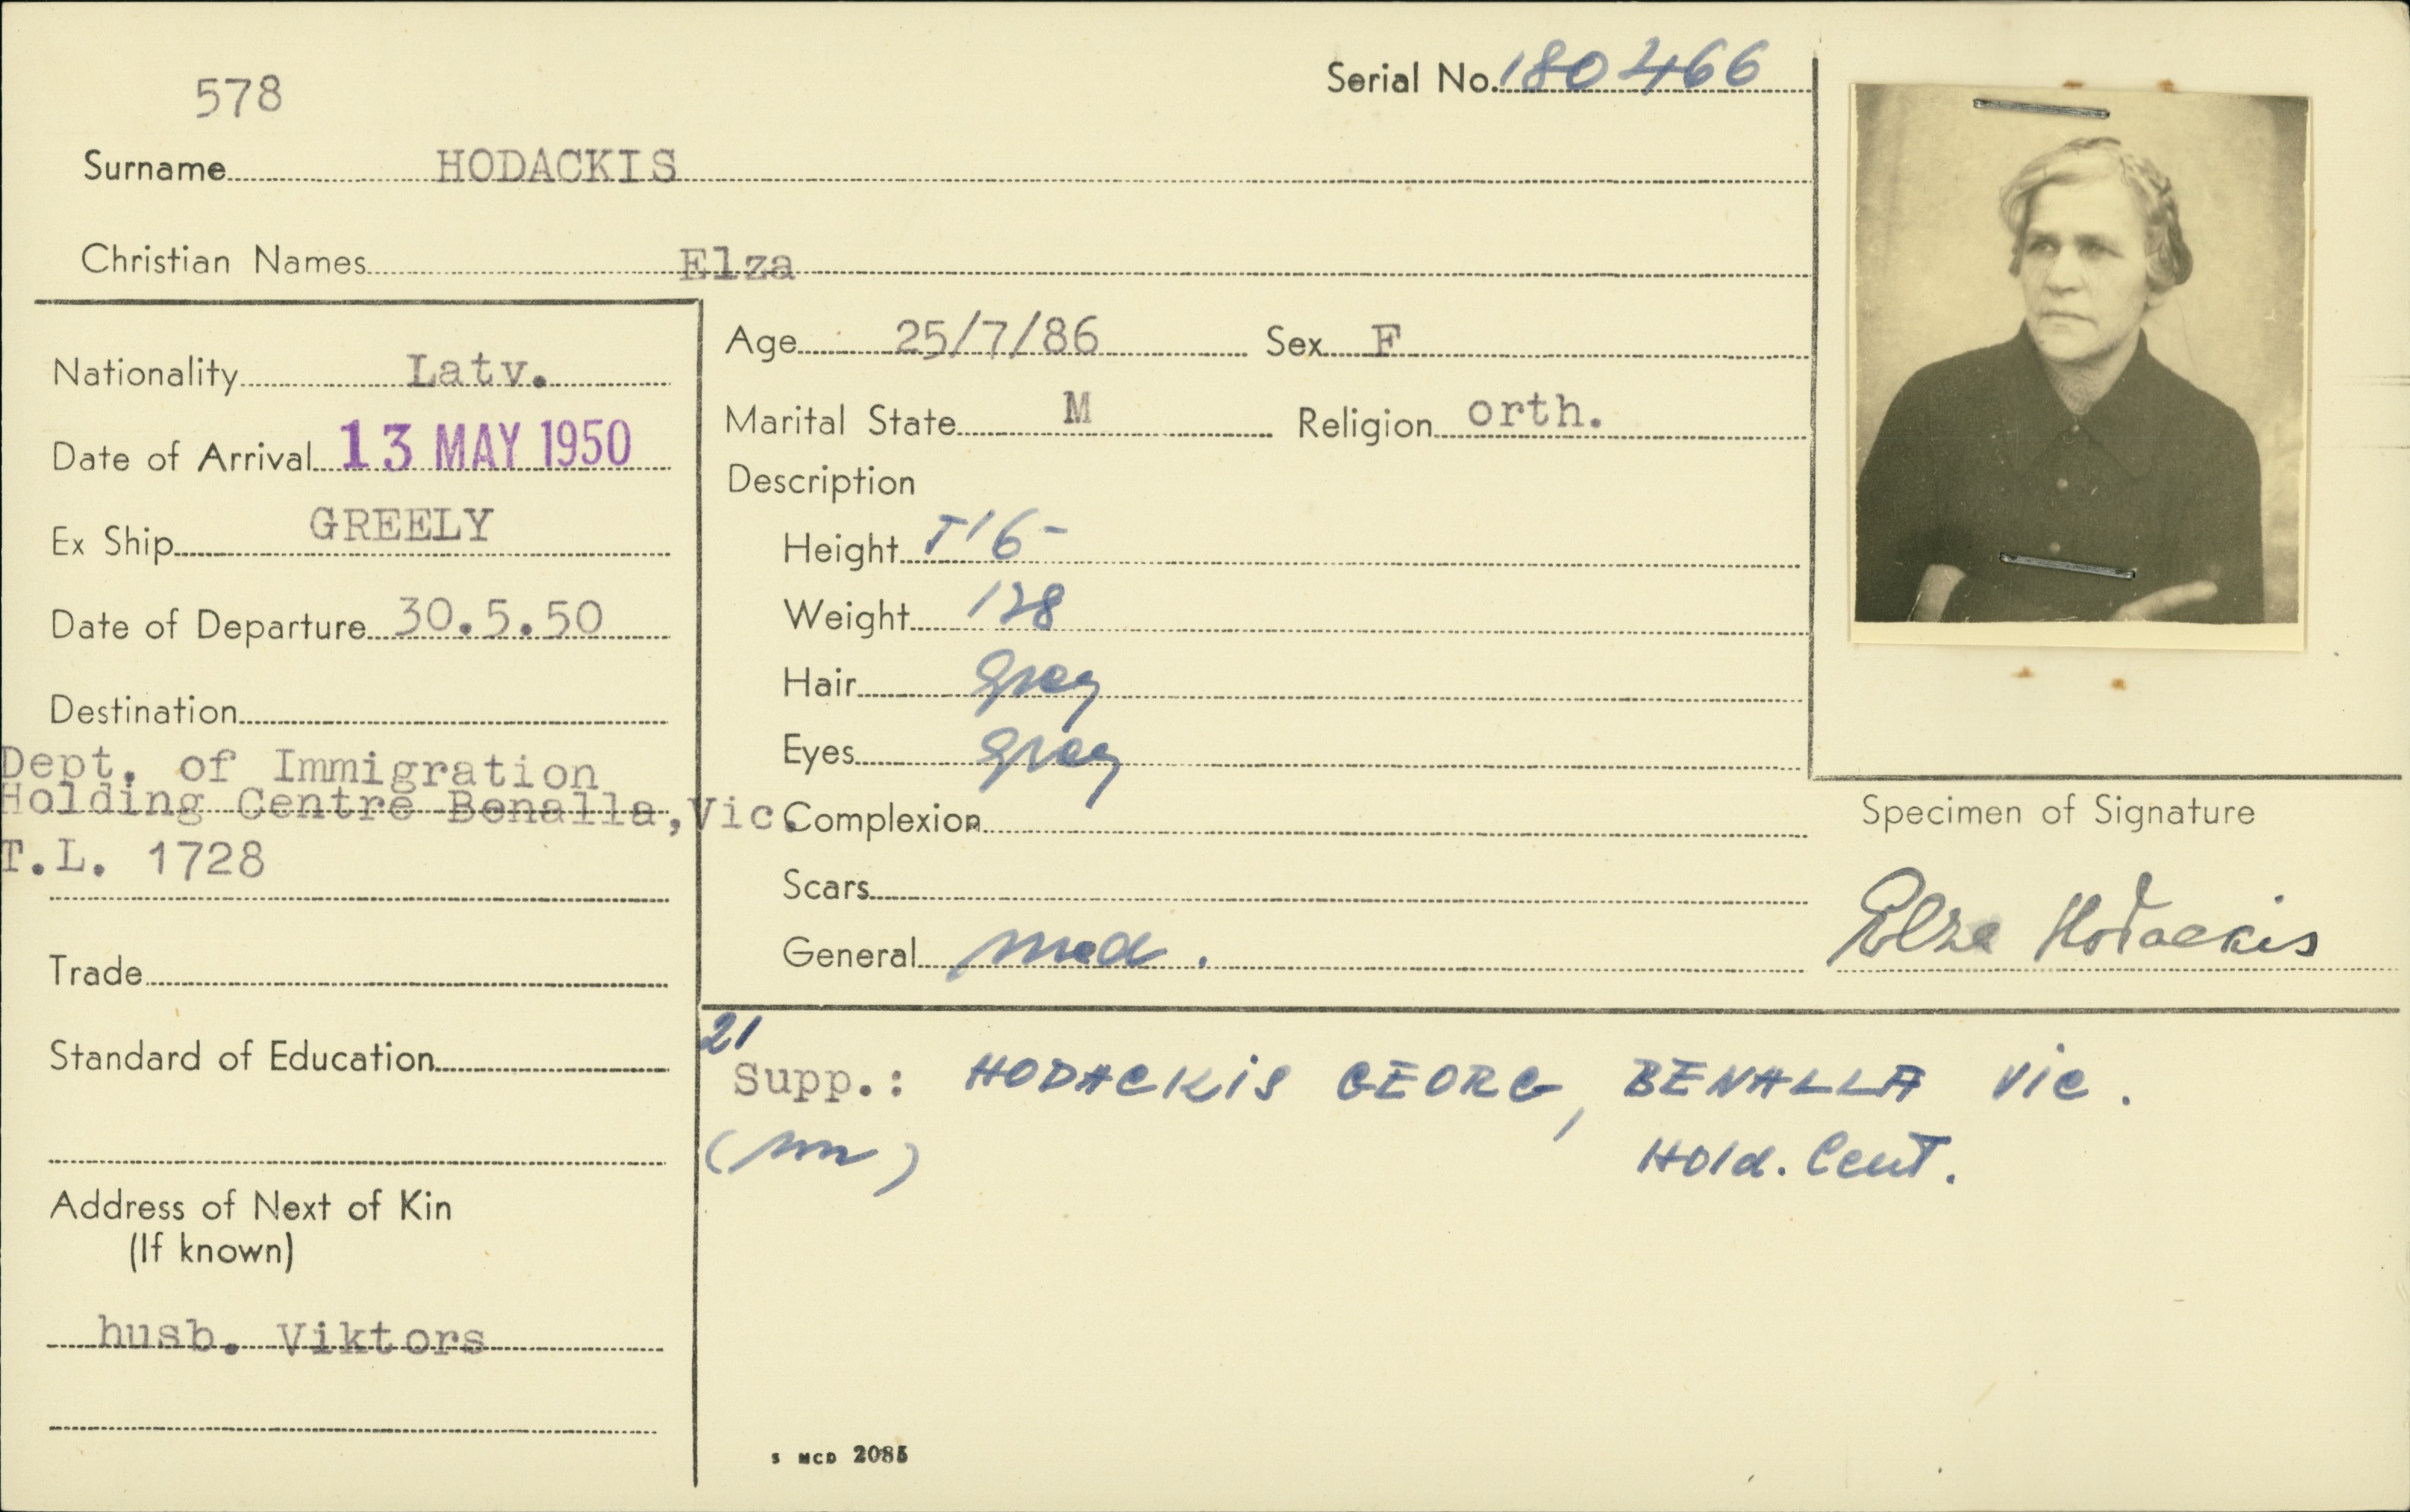 578
Serial No. 180466
Surname HODACKIS
Christian Names Elza
Nationality Latv.
Date of Arrival 13 MAY 1950
Ex Ship GREELY
Date of Departure 30.5.50
Destination
Dept. of Immigration
Holding Centre Benalla, Vic.
T.L. 1728
Trade
Standard of Education
Address of Next of Kin
(If known)
husb. Viktors
Age 25/7/86 Sex F
Marital State M Religion orth.
Description
Height 5'6-
Weight 128
Hair Grey
Eyes Grey
Complexion
Scars
General med.
Specimen of Signature
Elza Hodackis
21
Supp.: HODACKIS GEORG, BENALLA Vic.
Hold. Cent.
S MCD